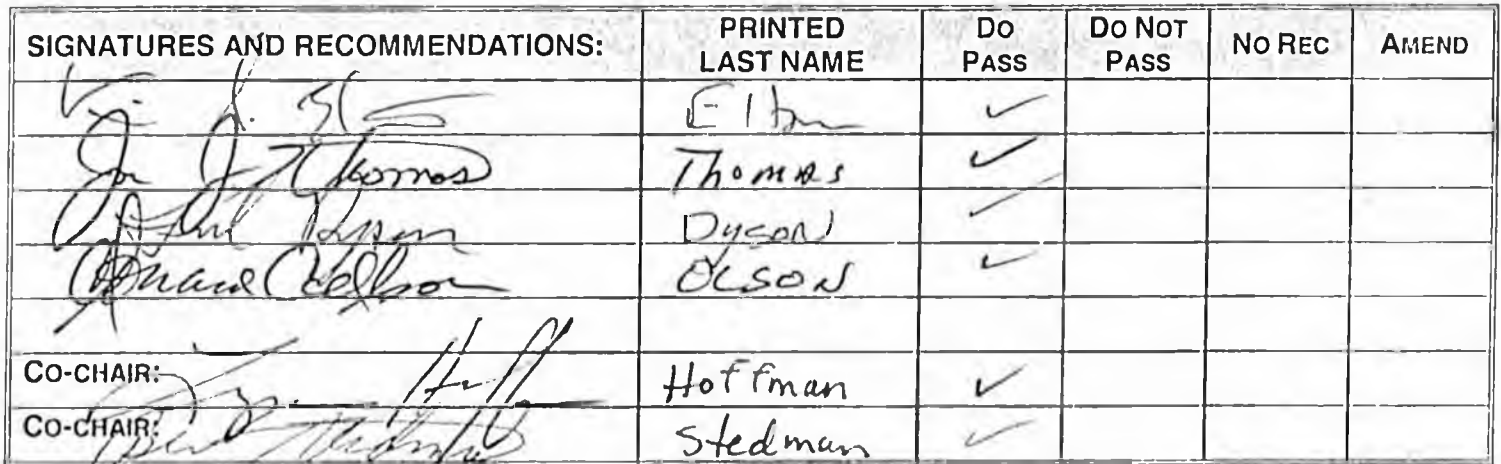 SIGNATURES AND RECOMMENDATIONS: PRINTED LAST NAME DO PASS DO NOT PASS NO REC AMEND
Elton ✓
Joe J. Thomas Thomas ✓
Fred Dyson Dyson ✓
Donald Olson OLSON ✓
CO-CHAIR: Hoffman ✓
CO-CHAIR: Bert Stedman Stedman ✓